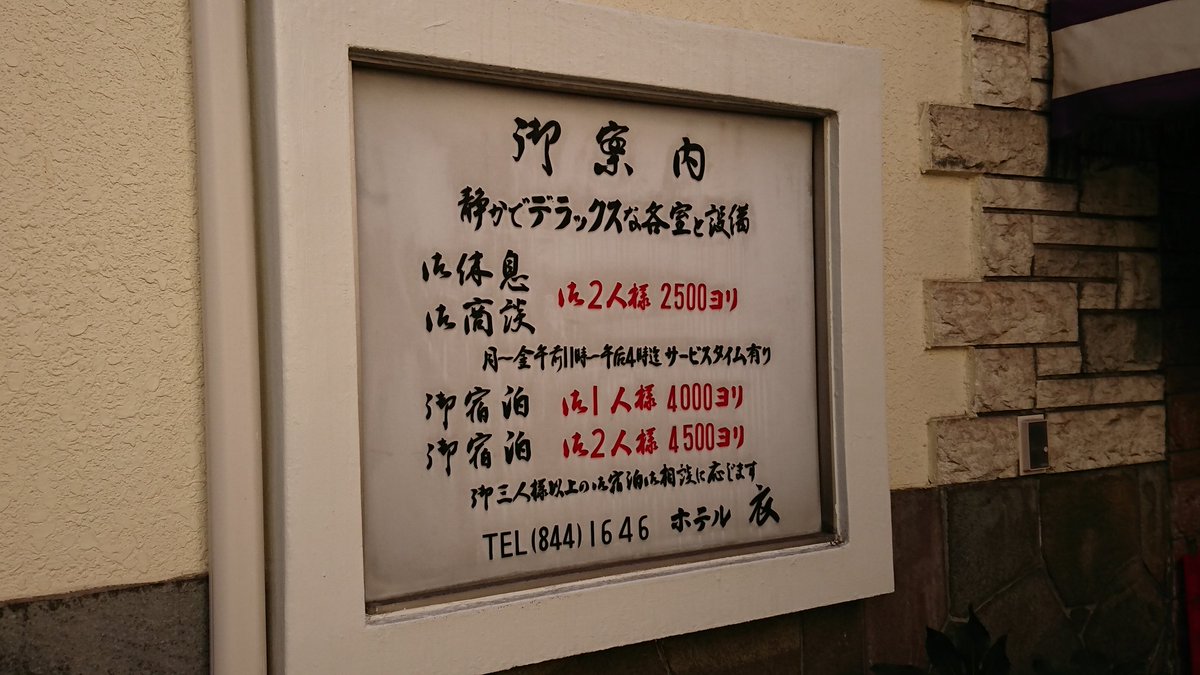 御案内
静かでデラックスな各室と設備
御休息
御商談
御2人様 2500ヨリ
月~金午前11時~午后4時迄 サービスタイム有り
御宿泊 御1人様 4000ヨリ
御宿泊 御2人様 4500ヨリ
御三人様以上の御宿泊御相談に応じます
TEL(844)1646 ホテル 衣